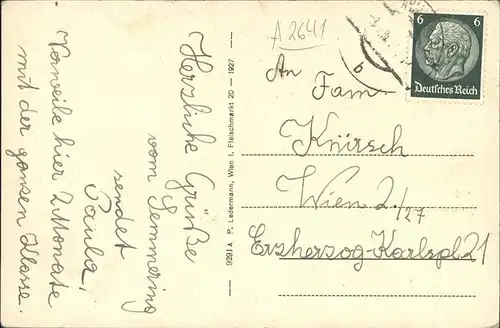 Herzliche Grüße
vom Semmering
sendet
Paula,
Verweile hier 2 Monate
mit der ganzen Klasse.
9291 A P. Ledermann, Wien I, Fleischmarkt 20 — 1927
A 2641
6 6
Deutsches Reich
b
An Fam
Knirsch
Wien 2./27
Erzherzog-Karlspl 21